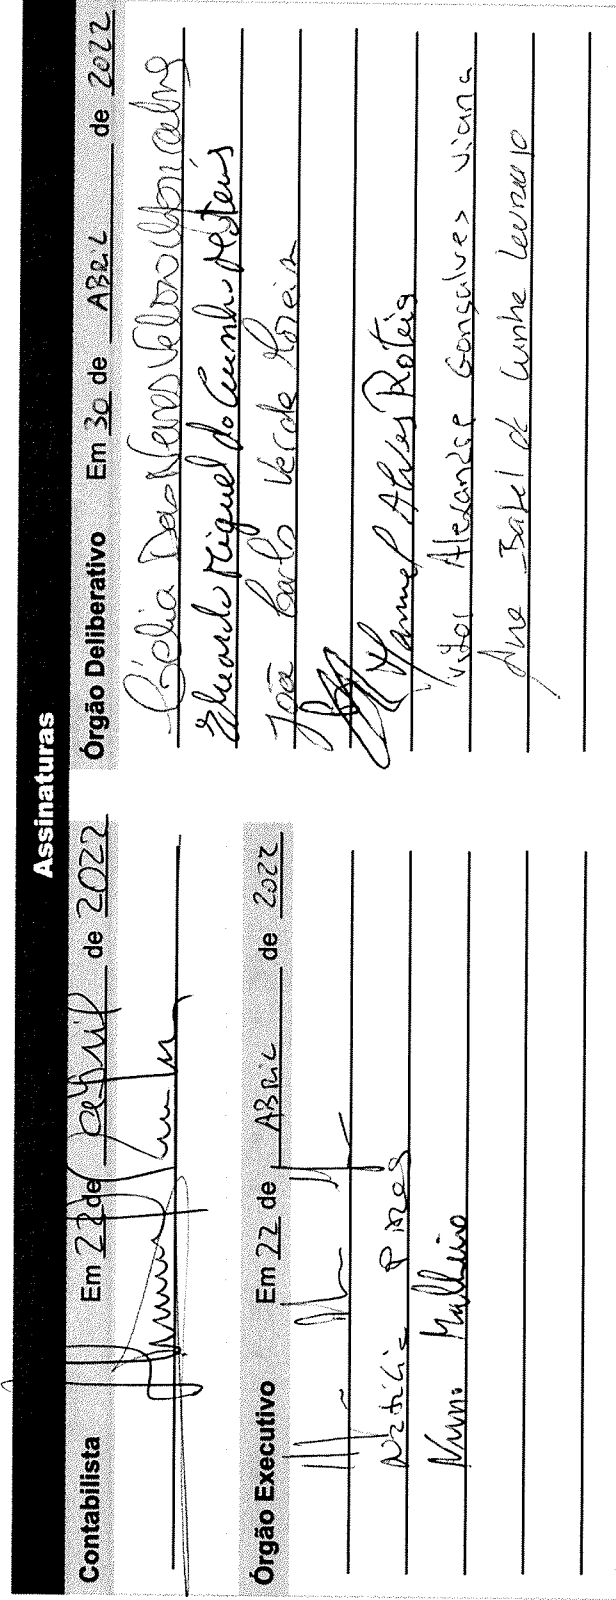 Assinaturas
Contabilista Em 22 de abril de 2022
Órgão Executivo Em 22 de ABRIL de 2022
Natália Pires
Nuno Malheiro
Órgão Deliberativo Em 30 de ABRIL de 2022
Célia Das Neves Veloso Gonçalves
Eduardo Miguel da Cunha Martins
João Carlos Verde
Manuel Alves
Vitor Alexandre Gonçalves Viana
Ana Isabel da Cunha Lourenço